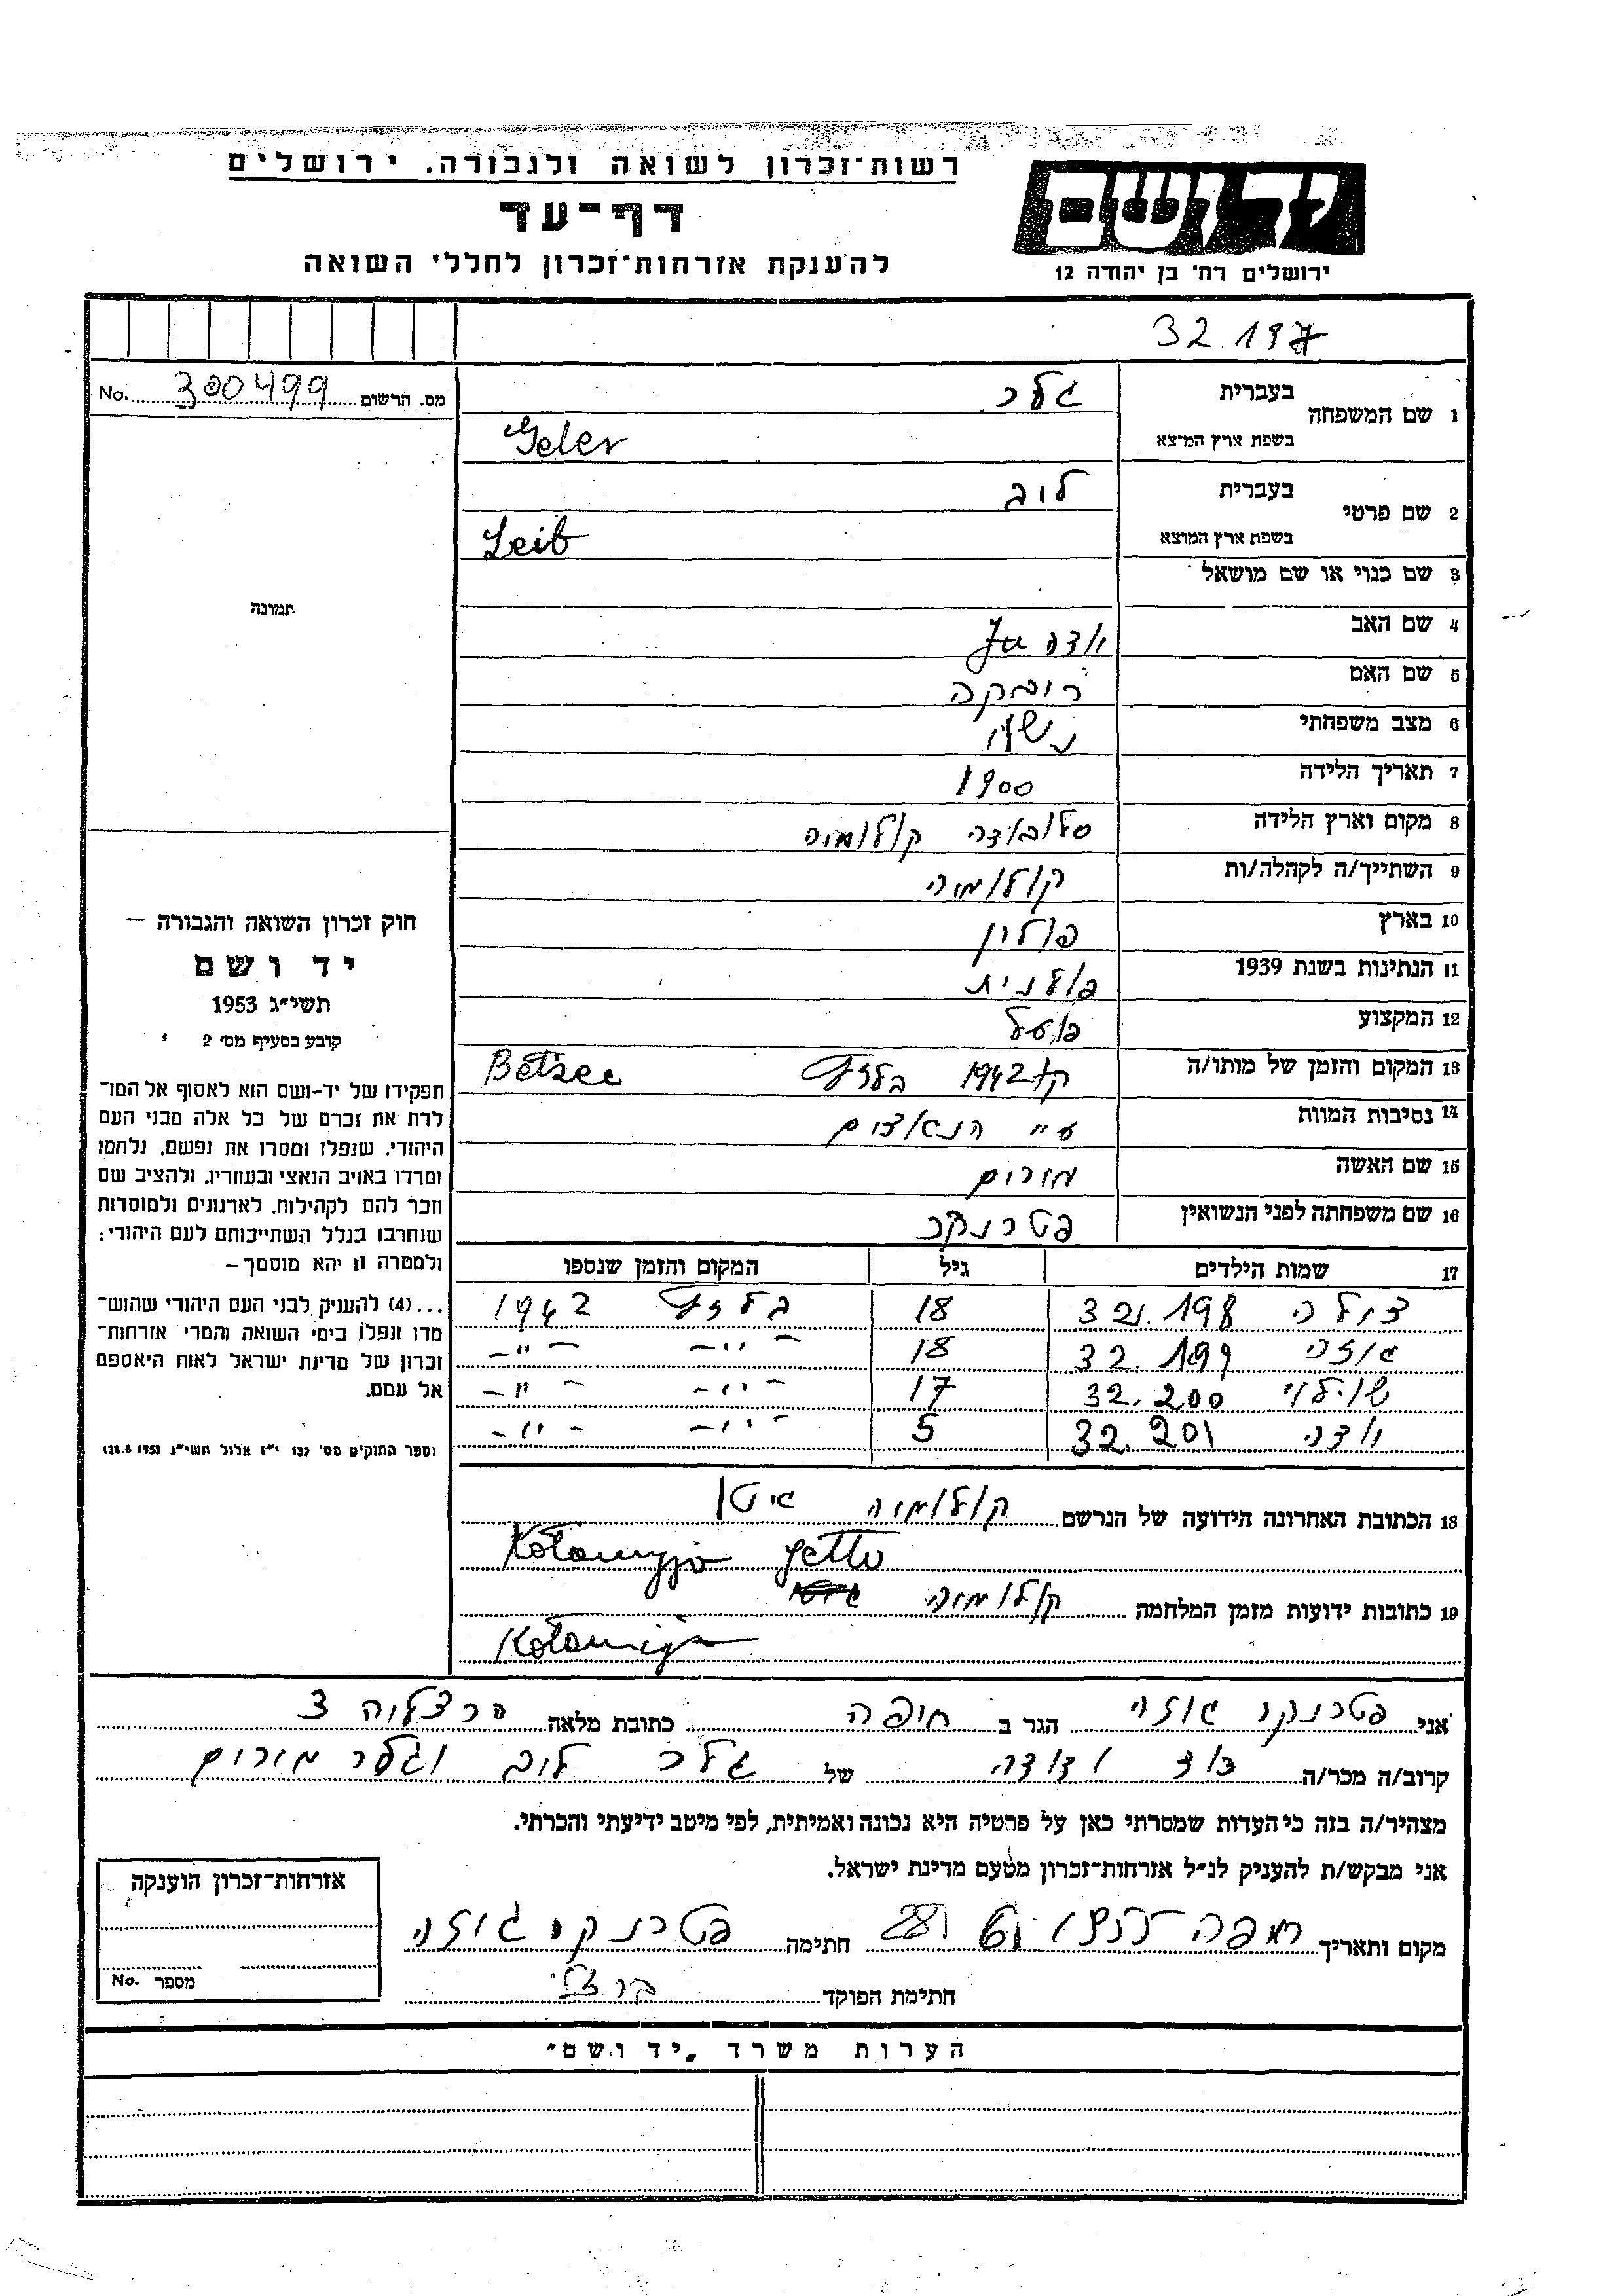 רשות־זכרון לשואה ולגבורה. ירושלים
דף-עד
להענקת אזרחות־זכרון לחללי השואה
יד ושם
ירושלים רח' בן יהודה 12
32.197
מס. הרשום 300499 No.
1 שם המשפחה בעברית גלר
בשפת ארץ המוצא Geler
2 שם פרטי בעברית ליב
בשפת ארץ המוצא Leib
3 שם כנוי או שם מושאל
תמונה
4 שם האב
5 שם האם
6 מצב משפחתי נשוי
7 תאריך הלידה 1900
8 מקום וארץ הלידה סלובודה קולומיה
9 השתייך/ה לקהלה/ות קולומיה
10 בארץ פולין
11 הנתינות בשנת 1939 פולנית
12 המקצוע פועל
13 המקום והזמן של מותו/ה קיץ 1942 בלזץ Bełzec
14 נסיבות המוות ע"י הנאצים
15 שם האשה מרים
16 שם משפחתה לפני הנשואין פטרנקר
חוק זכרון השואה והגבורה –
יד ושם
תשי"ג 1953
קובע בסעיף מס' 2
תפקידו של יד-ושם הוא לאסוף אל המו־
לדת את זכרם של כל אלה מבני העם
היהודי. שנפלו ומסרו את נפשם, נלחמו
ומרדו באויב הנאצי ובעוזריו, ולהציב שם
וזכר להם לקהילות, לארגונים ולמוסדות
שנחרבו בגלל השתייכותם לעם היהודי;
ולמטרה זו יהא מוסמך –
...(4) להעניק לבני העם היהודי שהוש־
מדו ונפלו בימי השואה והמרי אזרחות־
זכרון של מדינת ישראל לאות היאספם
אל עמם.
(ספר החוקים מס' 132 י"ז אלול תשי"ג 28.8.1953)
17 שמות הילדים גיל המקום והזמן שנספו
צילה 32.198 18 בלזץ 1942
גיזה 32.199 18 –"– –"–
32.200 17 –"– –"–
32.201 5 –"– –"–
18 הכתובת האחרונה הידועה של הנרשם קולומיה גיטו
Kołomyja getto
19 כתובות ידועות מזמן המלחמה קולומיה
Kołomija
אני פטרנקר גיזה הגר ב חיפה כתובת מלאה הרצליה 3
קרוב/ה מכר/ה דוד ודודה של גלר ליב וגלר מרים
מצהיר/ה בזה כי העדות שמסרתי כאן על פרטיה היא נכונה ואמיתית, לפי מיטב ידיעתי והכרתי.
אני מבקש/ת להעניק לנ"ל אזרחות־זכרון מטעם מדינת ישראל.
מקום ותאריך חיפה חתימה פטרנקר גיזה
חתימת הפוקד
אזרחות־זכרון הוענקה
מספר No.
הערות משרד „יד ושם"